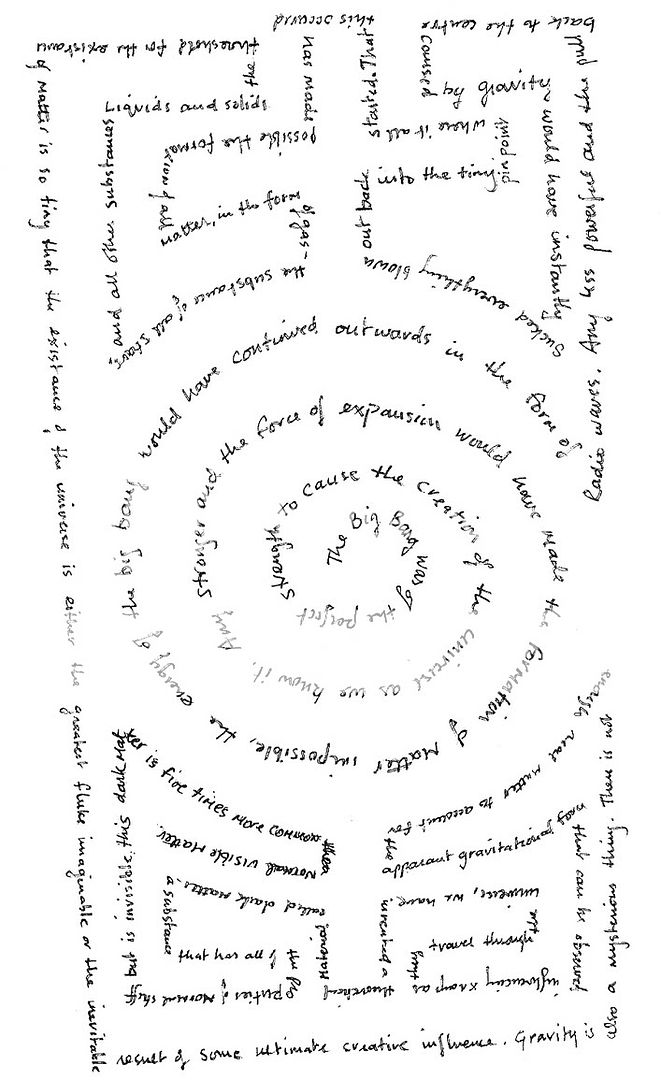 The Big Bang was of
the perfect
strength to cause the creation of the universe as we know it.
Any stronger and the force of expansion would have made the formation of matter impossible, the
energy of the big bang would have continued outwards in the form of
Radio waves. Any less powerful and the pull
back to the centre
caused
by gravity
would have instantly
sucked everything blown
out back
into the tiny
pinpoint
where it all
started. That
this occured
has made
possible the forma
tion of all
matter, in the form
of gas -
the substance of all stars,
and all other substances
Liquids and
the
threshold for the existance
of matter is so tiny that the existance of the universe is either the greatest fluke imaginable or the inevitable
result of some ultimate creative influence. Gravity is
also a mysterious thing. There is not
enough real matter to account for
the
apparant gravitational
that can be observed
influencing
travel through
universe, we have
invented a
theoretical
material
called dark matter,
a substance
that has all of
the pro
perties of normal stuff
but is invisible, this dark mat
ter is five times more common
than
normal visible matter.